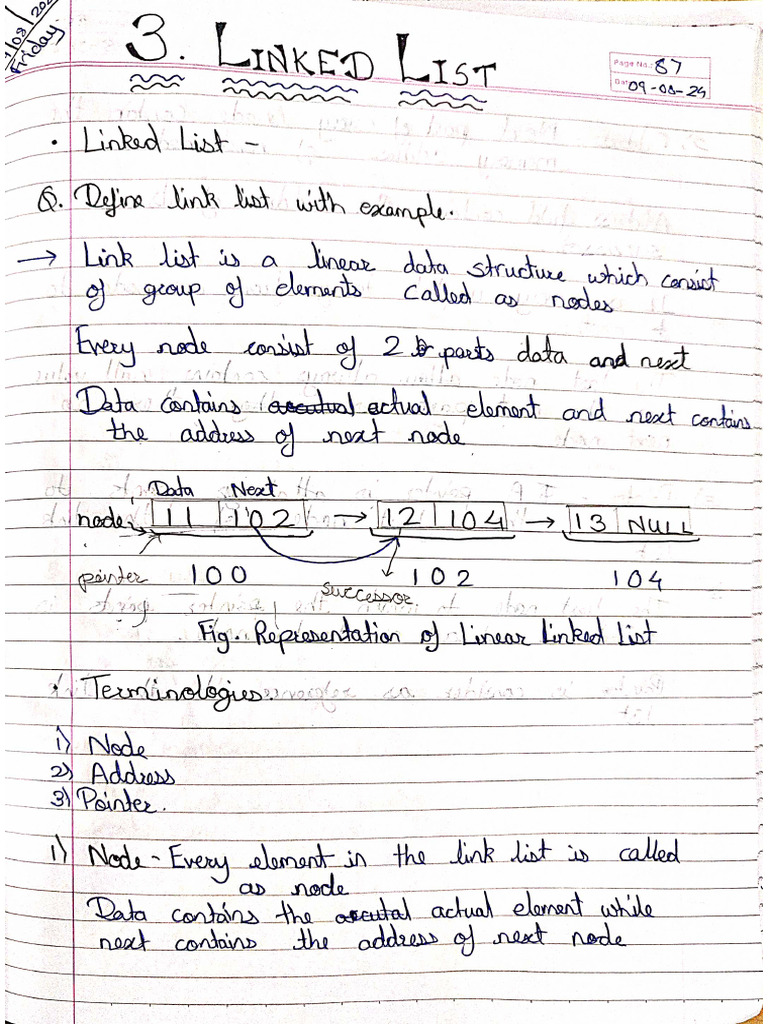 Friday
3. LINKED LIST
Page No.: 87
Date: 09-08-24
• Linked List -
Q. Define link list with example.
→ Link list is a linear data structure which consist
of group of elements called as nodes
Every node consist of 2 parts data and next
Data contains actual element and next contains
the address of next node
Data Next
node 11 102 → 12 104 → 13 NULL
pointer 100 successor 102 104
Fig. Representation of Linear Linked List
• Terminologies.
1) Node
2) Address
3) Pointer.
1) Node - Every element in the link list is called
as node
Data contains the actual element while
next contains the address of next node